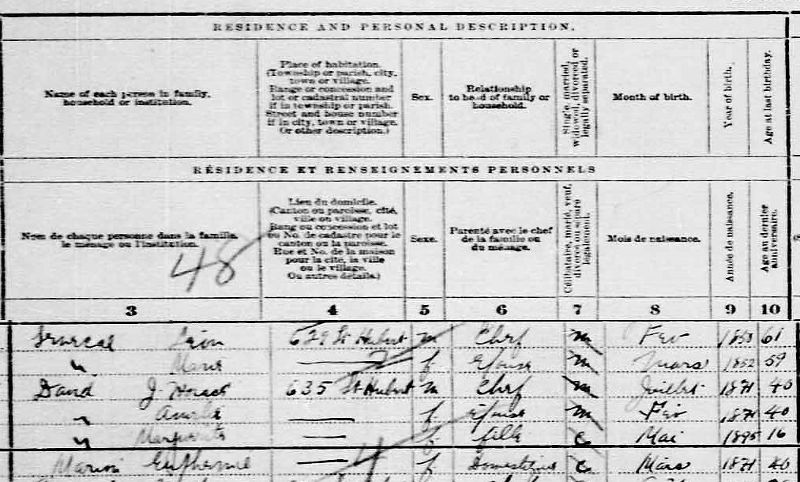 RESIDENCE AND PERSONAL DESCRIPTION.
Name of each person in family, household or institution.
Place of habitation.
(Township or parish, city,
town or village.
Range or concession and
lot or cadastral number
if in township or parish.
Street and house number
if in city, town or village.
Or other description.)
Sex.
Relationship
to head of family or
household.
Single, married,
widowed, divorced or
legally separated.
Month of birth.
Year of birth.
Age at last birthday.
RÉSIDENCE ET RENSEIGNEMENTS PERSONNELS
Nom de chaque personne dans la famille,
le ménage ou l'institution.
Lieu du domicile.
(Canton ou paroisse, cité,
ville ou village.
Rang ou concession et lot
ou No. de cadastre pour le
canton ou la paroisse.
Rue et No. de la maison
pour la cité, la ville
ou le village.
Ou autres détails.)
Sexe.
Parenté avec le chef
de la famille ou
du ménage.
Célibataire, marié, veuf,
divorcé ou séparé
légalement.
Mois de naissance.
Année de naissance.
Age au dernier
anniversaire.
48
3 4 5 6 7 8 9 10
Léon 629 St Hubert m Chef m Fev 61
" Marie — f Épouse m Mars 1852 59
David J Horace 635 St Hubert m Chef m Juillet 1871 40
" — f Épouse m Fév 1871 40
" Marguerite — f fille c Mai 1895 16
Marion Euphemie — f Domestique c Mars 1871 40